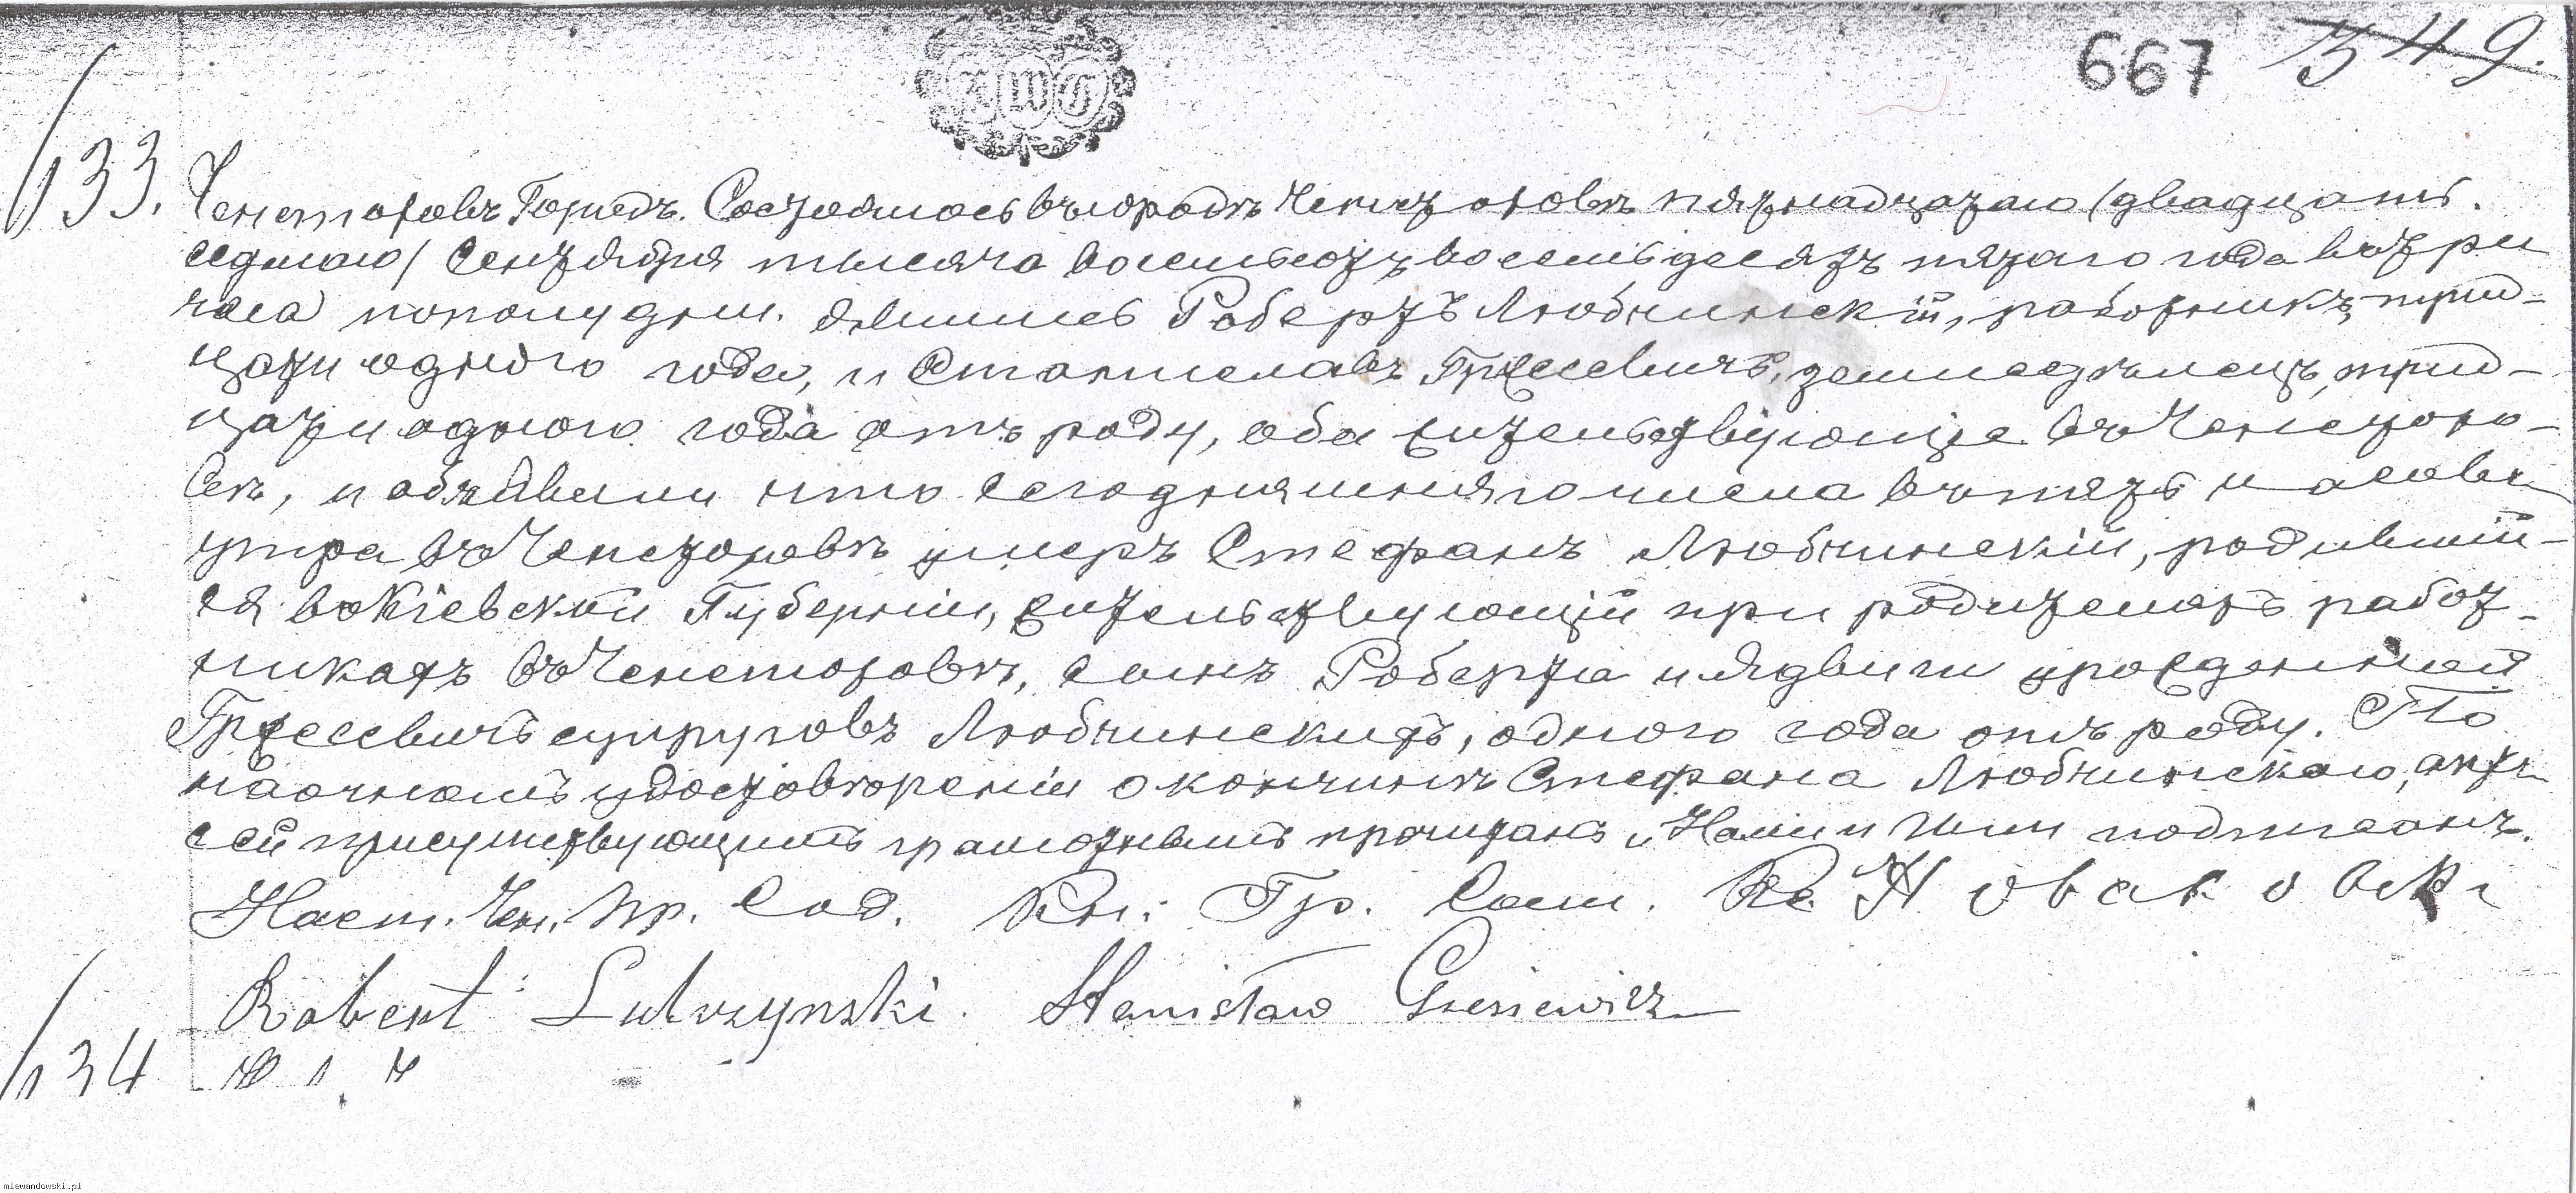 667 549.
133. Ченстоховъ Городъ. Состоялось въ городѣ Ченстоховѣ пятнадцатаго /двадцать
седмаго/ Сентября тысяча восемьсотъ восемьдесятъ пятаго года въ три
часа пополудни. Явились Робертъ Любчинскій, работникъ, трид-
цати одного года, и Станиславъ Гржесевичъ, земледѣлецъ, трид-
цати одного года отъ роду, оба жительствующіе въ Ченстохо-
вѣ, и объявили что сегодняшняго числа въ пять часовъ
утра въ Ченстоховѣ умеръ Стефанъ Любчинскій, родившій-
ся въ Кіевской Губерніи, жительствующій при родителяхъ работ-
никахъ въ Ченстоховѣ, сынъ Роберта и Ядвиги урожденной
Гржесевичъ супруговъ Любчинскихъ, одного года отъ роду. По
наочномъ удостовѣреніи о кончинѣ Стефана Любчинскаго, актъ
сей присутствующимъ грамотнымъ прочитанъ и Нами и ими подписанъ.
Наст. Чен. Пр. Сод. Кн. Гр. Сост. Кс. Новаковски
Robert Lubczynski. Stanisław Gresiewicz
134
mlewandowski.pl